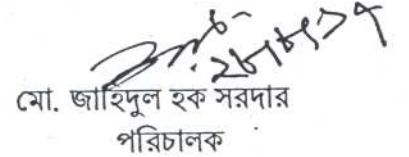 মো. জাহিদুল হক সরদার
পরিচালক